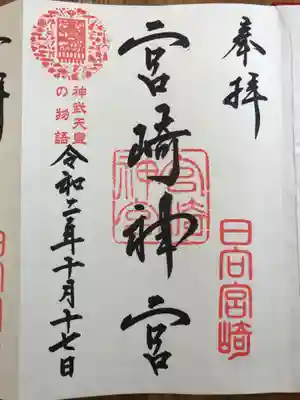 奉拝
日向宮崎
宮崎神宮
宮崎神宮
神武天皇
の物語
令和二年十月十七日